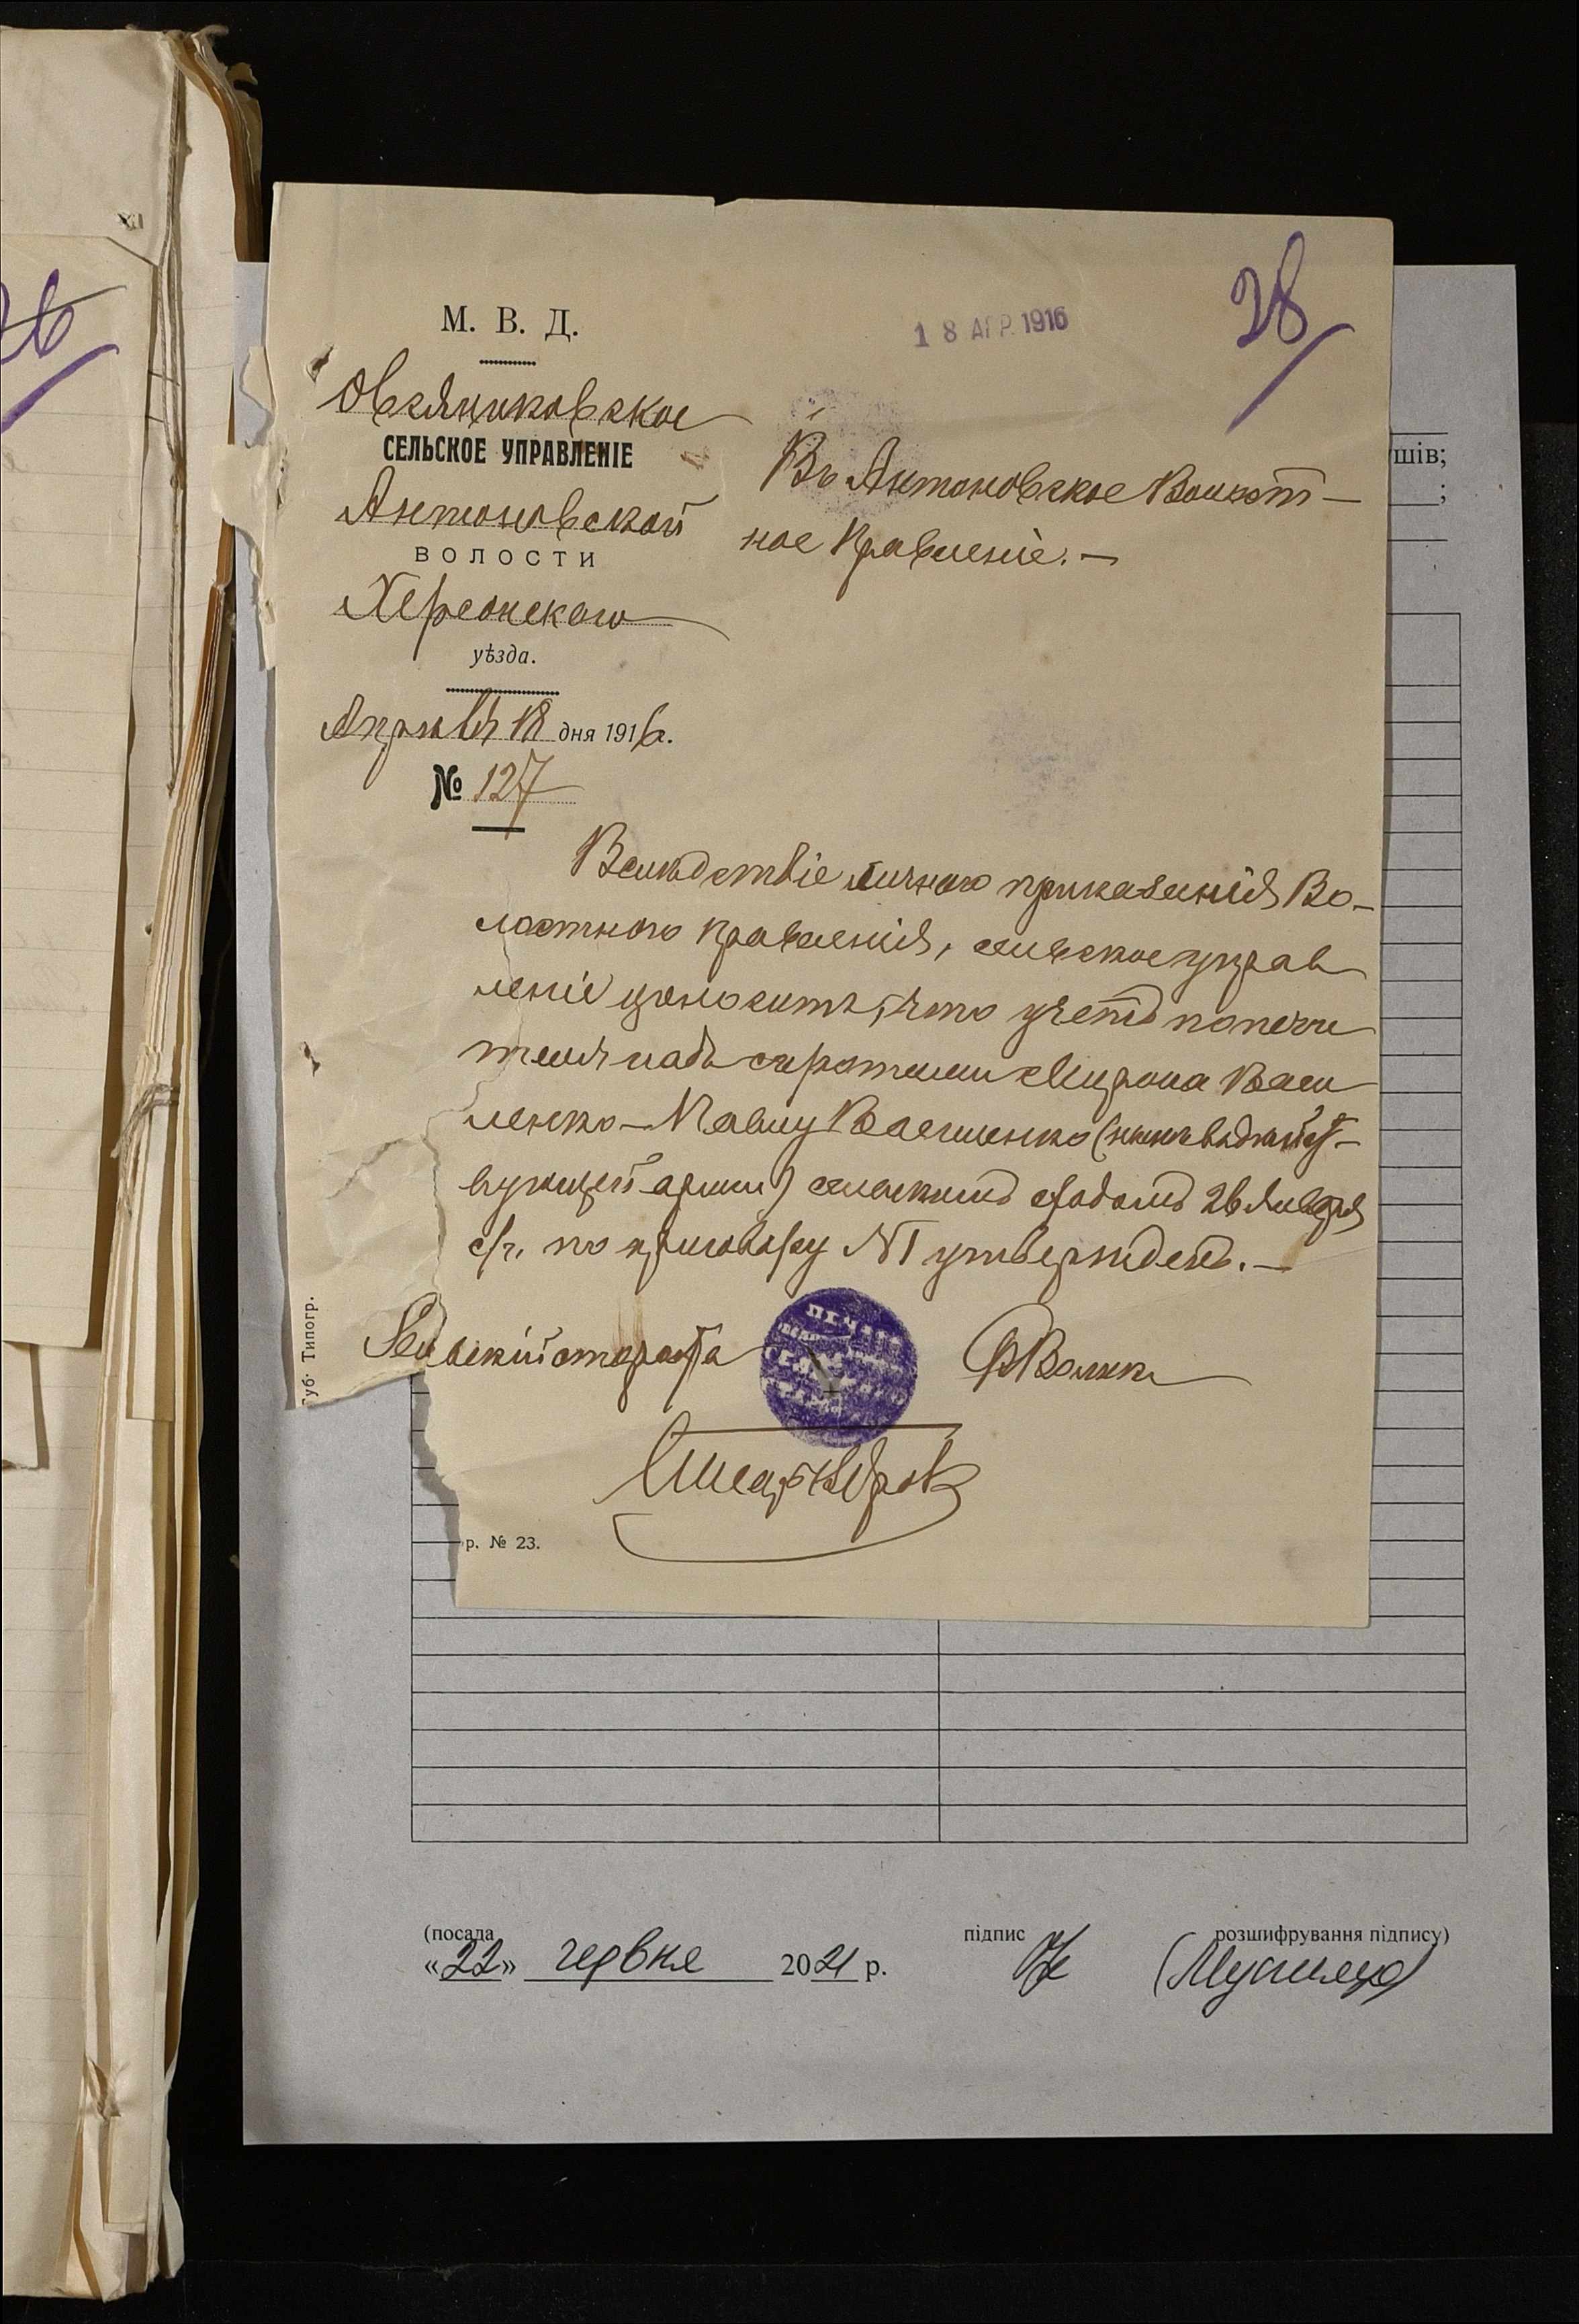 26
28
18 АПР. 1916
М. В. Д.
Овсяниковское
СЕЛЬСКОЕ УПРАВЛЕНІЕ
Антоновской
ВОЛОСТИ
Херсонского
уѣзда.
Апрѣля 18 дня 1916 г.
№ 127
Въ Антоновское Волост-
ное Правленіе. —
Вслѣдствіе личного приказанія Во-
лостного Правленія, сельское управ
леніе доноситъ, что учетъ попечи
теля надъ сиротами Мирона Васи
ленко — Павлу Василенко (нынѣ въ дѣйст-
вующей арміи) сельскимъ сходомъ 26 Января
с/г. по приговору №1 утвержденъ. —
Сельскій староста
Волик
Писарь
Губ. Типогр.
р. № 23.
шів;
;
(посада
підпис
розшифрування підпису)
«22» червня 2021 р.